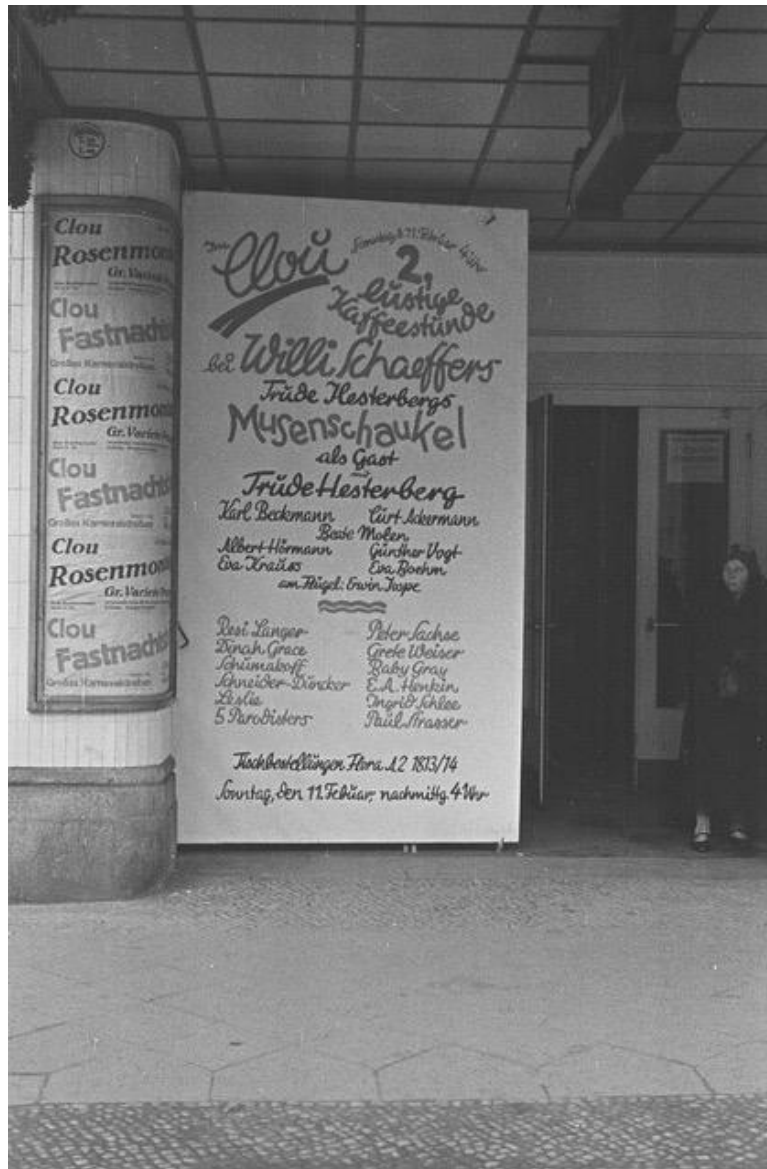 Clou
Rosenmon
Gr. Varieté
Clou
Fastnachts
Großes Karnevalstreiben
Clou
Rosenmon
Gr. Varieté
Clou
Fastnachts
Großes Karnevalstreiben
Clou
Rosenmon
Gr. Varieté
Clou
Fastnachts
Großes Karnevalstreiben
Im Clou
Sonntag, d. 11. Februar 4 Uhr
2.
lustige
Kaffeestunde
bei Willi Schaeffers
Trude Hesterbergs
Musenschaukel
als Gast
Trude Hesterberg
Karl Beckmann Curt Ackermann
Beate Molen
Albert Hörmann Günther Vogt
Eva Krauss Eva Boehm
am Flügel: Erwin Jospe
Resi Langer Peter Sachse
Dinah Grace Grete Weiser
Schumakoff Baby Gray
Schneider-Duncker E.A. Henkin
Leslie Ingrid Schlee
5 Parodisters Paul Strasser
Tischbestellungen Flora A2 1813/14
Sonntag, den 11. Februar, nachmittg. 4 Uhr